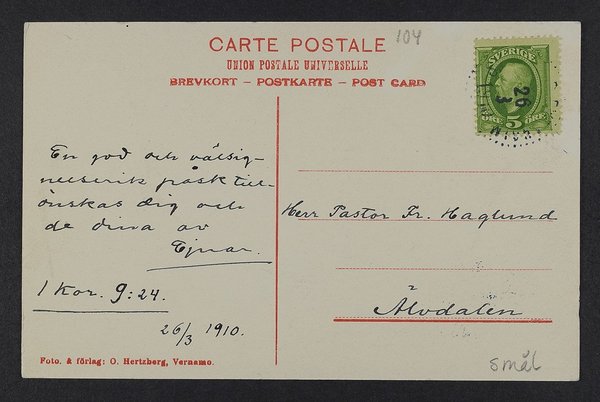 CARTE POSTALE
104
UNION POSTALE UNIVERSELLE
BREVKORT – POSTKARTE – POST CARD
SVERIGE
26
3
5
ÖRE ÖRE
En god och välsig-
nelserik påsk till-
önskas dig och
de dina av
Ejnar.
1 Kor. 9:24.
26/3 1910.
Herr Pastor Fr. Haglund
Älvdalen
Foto. & förlag: O. Hertzberg, Vernamo.
Smål